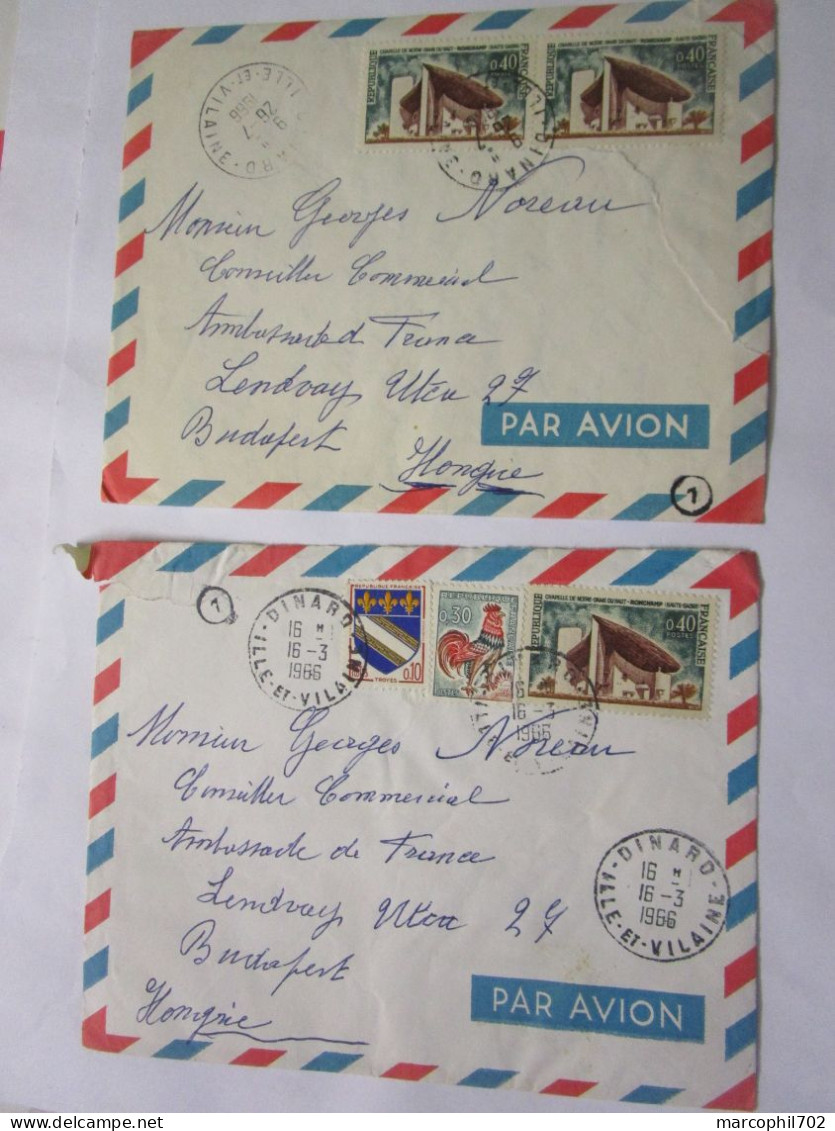 CHAPELLE DE NOTRE-DAME-DU-HAUT - RONCHAMP (HAUTE-SAONE)
RÉPUBLIQUE
0,40
FRANÇAISE
CHAPELLE DE NOTRE-DAME-DU-HAUT - RONCHAMP (HAUTE-SAONE)
RÉPUBLIQUE
0,40
FRANÇAISE
26-7
1966
ILLE-ET-VILAINE
DINARD
Monsieur Georges Noreau
Conseiller Commercial
Ambassade d France
Lendvay Utca 27
Budapest
Hongrie
PAR AVION
1
1
DINARD
16 H
16-3
1966
ILLE-ET-VILAINE
REPUBLIQUE FRANÇAISE
0,10
TROYES
0,30
CHAPELLE DE NOTRE-DAME-DU-HAUT - RONCHAMP (HAUTE-SAONE)
RÉPUBLIQUE
0,40
POSTES
FRANÇAISE
16-3
1966
Monsieur Georges Noreau
Conseiller Commercial
Ambassade de France
Lendvay Utca 27
Budapest
Hongrie
DINARD
16 H
16-3
1966
ILLE-ET-VILAINE
PAR AVION
marcophil702